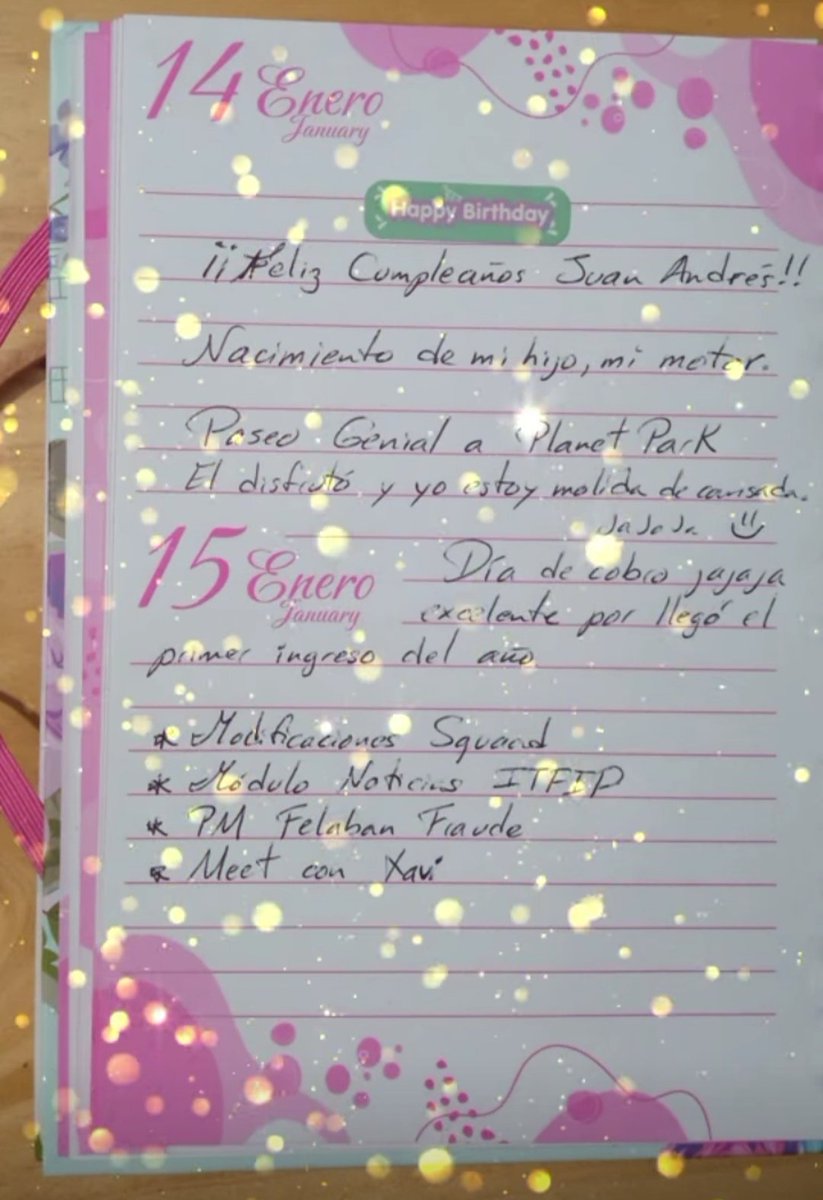 14 Enero
January
Happy Birthday
¡¡Feliz Cumpleaños Juan Andrés!!
Nacimiento de mi hijo, mi motor.
Paseo Genial a Planet Park
El disfrutó y yo estoy molida de cansada.
Ja Ja Ja
15 Enero
January
Día de cobro jajaja
excelente por llegó el
primer ingreso del año
* Modificaciones Squad
* Módulo Noticias ITFIP
* PM Felaban Fraude
* Meet con Xavi